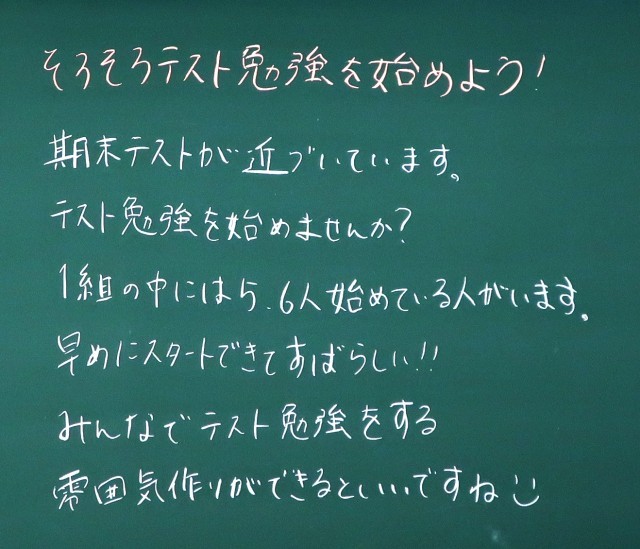 そろそろテスト勉強を始めよう!
期末テストが近づいています。
テスト勉強を始めませんか?
1組の中には5、6人始めている人がいます。
早めにスタートできてすばらしい!!
みんなでテスト勉強をする
雰囲気作りができるといいですね